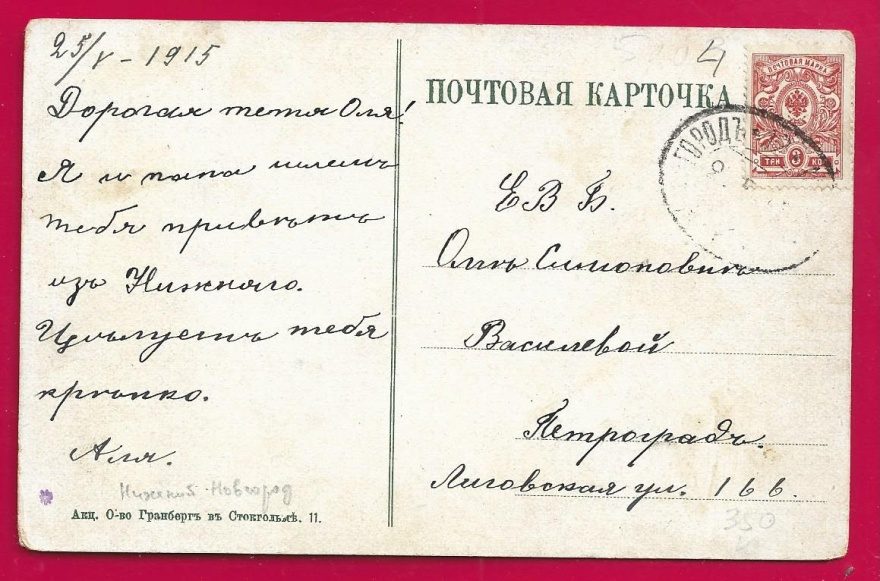 25/V - 1915
Дорогая тетя Оля!
Я и папа шлемъ
тебѣ привѣтъ
изъ Нижняго.
Цѣлуетъ тебя
крѣпко.
Аля.
Нижний-Новгород
Акц. О-во Гранбергъ въ Стокгольмѣ. 11.
4
ПОЧТОВАЯ КАРТОЧКА
ПОЧТОВАЯ МАРКА
ТРИ 3 КОП
ГОРОДЪ
Е В Б.
Ольгѣ Симоновнѣ
Василевой
Петроградъ.
Лиговская ул. 166.
350